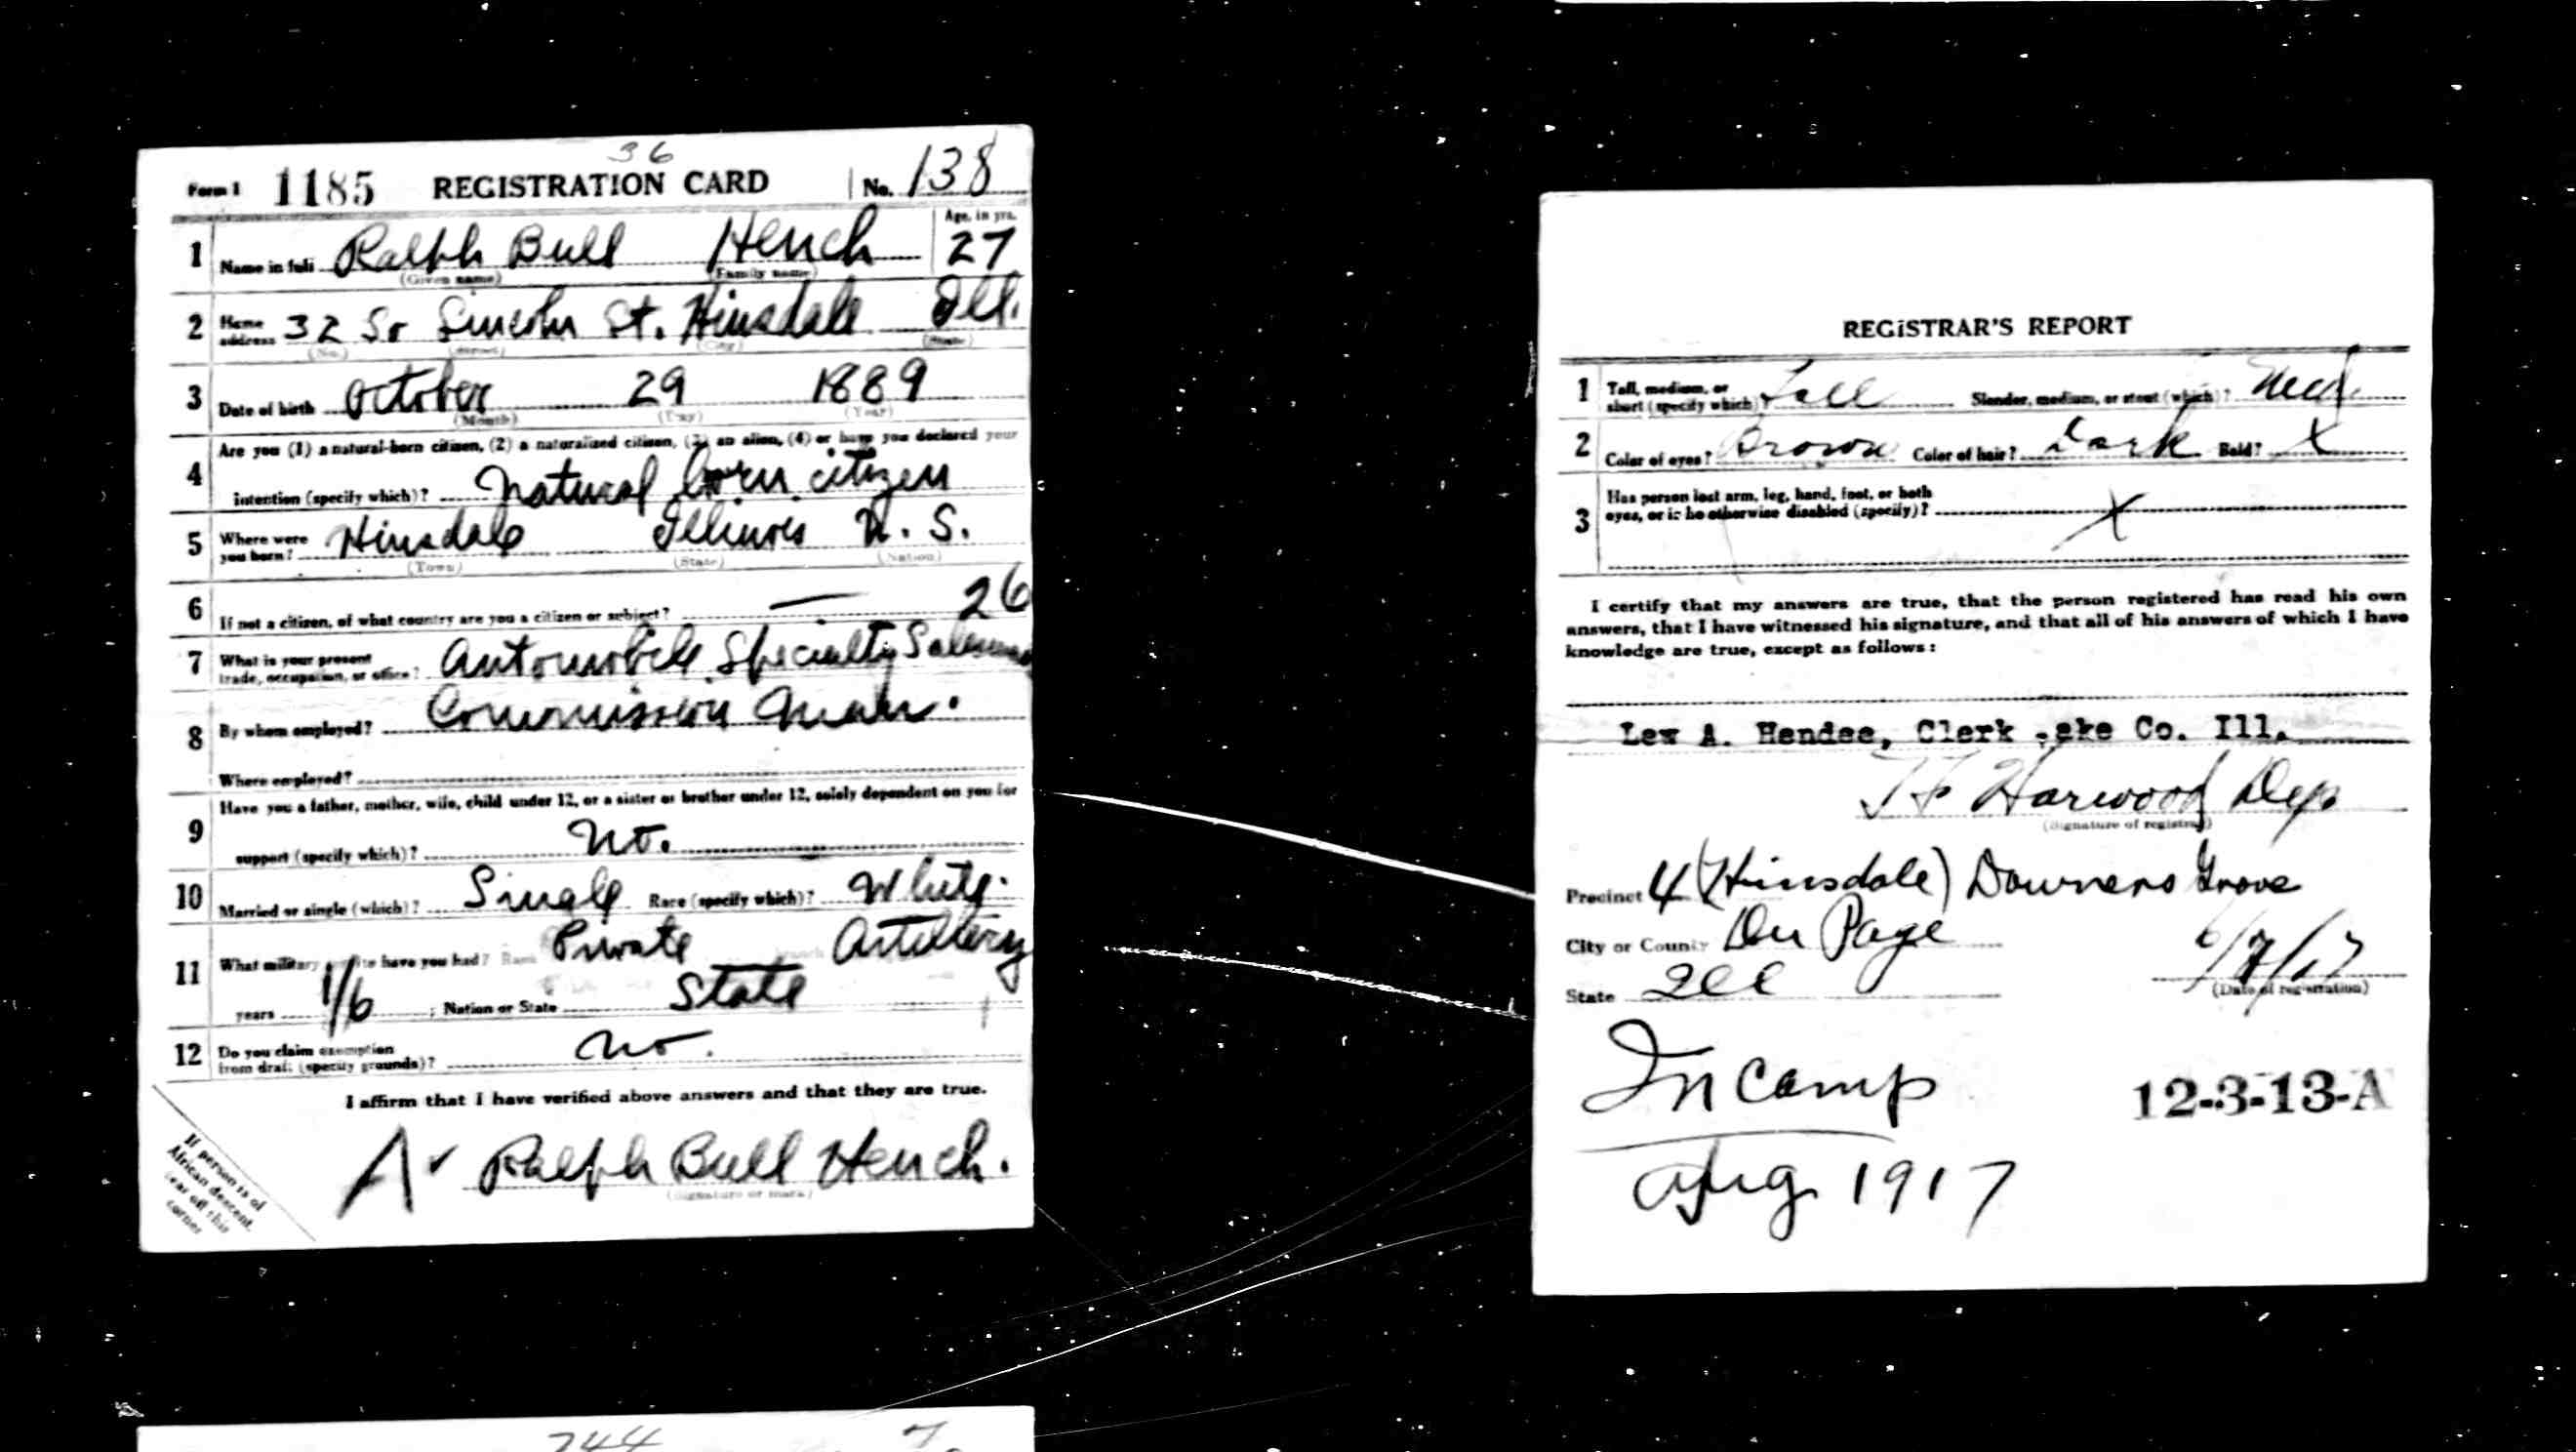 36
Form 1 1185 REGISTRATION CARD No. 138
Age, in yrs.
1 Name in full Ralph Bull Hench 27
(Given name) (Family name)
2 Home address 32 So Lincoln St. Hinsdale Ill.
(No.) (Street) (City) (State)
3 Date of birth October 29 1889
(Month) (Day) (Year)
4 Are you (1) a natural-born citizen, (2) a naturalized citizen, (3) an alien, (4) or have you declared your
intention (specify which)? Natural born citizen
5 Where were you born? Hinsdale Illinois U. S.
(Town) (State) (Nation)
6 If not a citizen, of what country are you a citizen or subject? — 26
7 What is your present trade, occupation, or office? Automobile Specialty Salesman
8 By whom employed? Commission Man.
Where employed?
9 Have you a father, mother, wife, child under 12, or a sister or brother under 12, solely dependent on you for
support (specify which)? No.
10 Married or single (which)? Single Race (specify which)? White.
11 What military service have you had? Rank Private branch Artillery
years 1/6 ; Nation or State State
12 Do you claim exemption from draft (specify grounds)? No.
I affirm that I have verified above answers and that they are true.
A ✓ Ralph Bull Hench.
(Signature or mark)
If person is of
African descent,
tear off this
corner
REGISTRAR'S REPORT
1 Tall, medium, or short (specify which)? Tall Slender, medium, or stout (which)? Med
2 Color of eyes? Brown Color of hair? Dark Bald? X
3 Has person lost arm, leg, hand, foot, or both
eyes, or is he otherwise disabled (specify)? X
I certify that my answers are true, that the person registered has read his own
answers, that I have witnessed his signature, and that all of his answers of which I have
knowledge are true, except as follows:
Lew A. Hendee, Clerk Co. Ill.
Harwood Dep
(Signature of registrar)
Precinct 4 (Hinsdale) Downers Grove
City or County Du Page
State Ill 6/7/17
(Date of registration)
In Camp
Aug 1917
12-3-13-A
744